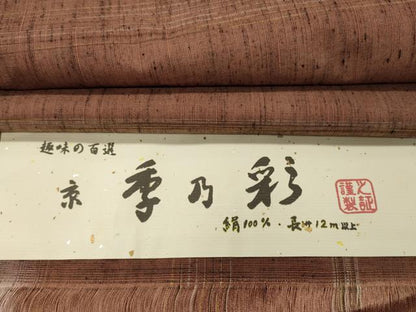 趣味の百選
京 季乃彩
絹100%・長サ12m以上
謹製之証